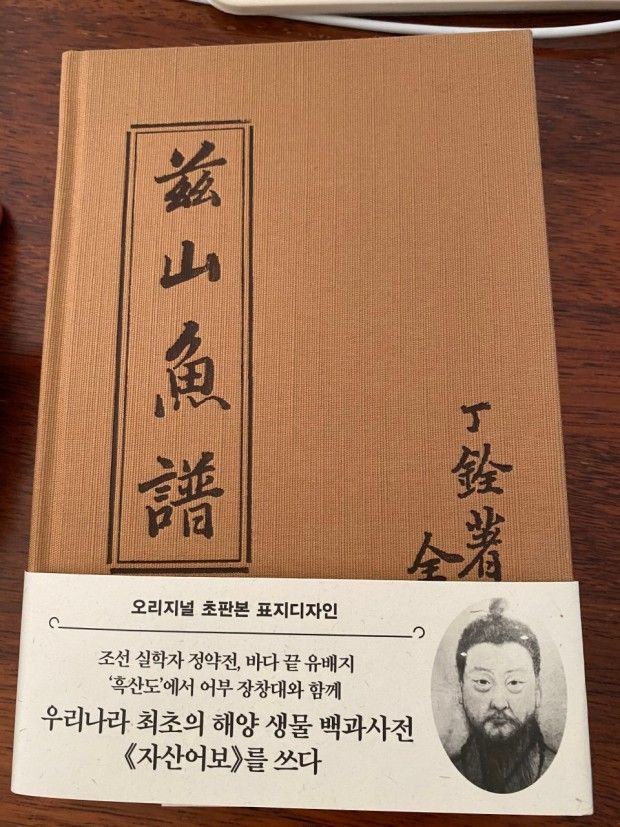 玆山魚譜
丁銓著
全
오리지널 초판본 표지디자인
조선 실학자 정약전, 바다 끝 유배지
‘흑산도’에서 어부 장창대와 함께
우리나라 최초의 해양 생물 백과사전
《자산어보》를 쓰다